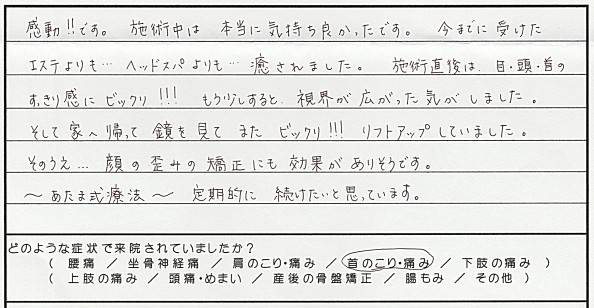 感動!!です。 施術中は 本当に気持ち良かったです。 今までに受けた
エステよりも… ヘッドスパよりも…癒されました。 施術直後は、目・頭・首の
すっきり感にビックリ!!! もう少しすると、視界が広がった気がしました。
そして家へ帰って鏡を見てまたビックリ!!! リフトアップしていました。
そのうえ… 顔の歪みの矯正にも効果がありそうです。
～あたま式療法～ 定期的に 続けたいと思っています。
どのような症状で来院されていましたか?
( 腰痛 / 坐骨神経痛 / 肩のこり・痛み / 首のこり・痛み / 下肢の痛み )
( 上肢の痛み / 頭痛・めまい / 産後の骨盤矯正 / 腸もみ / その他 )